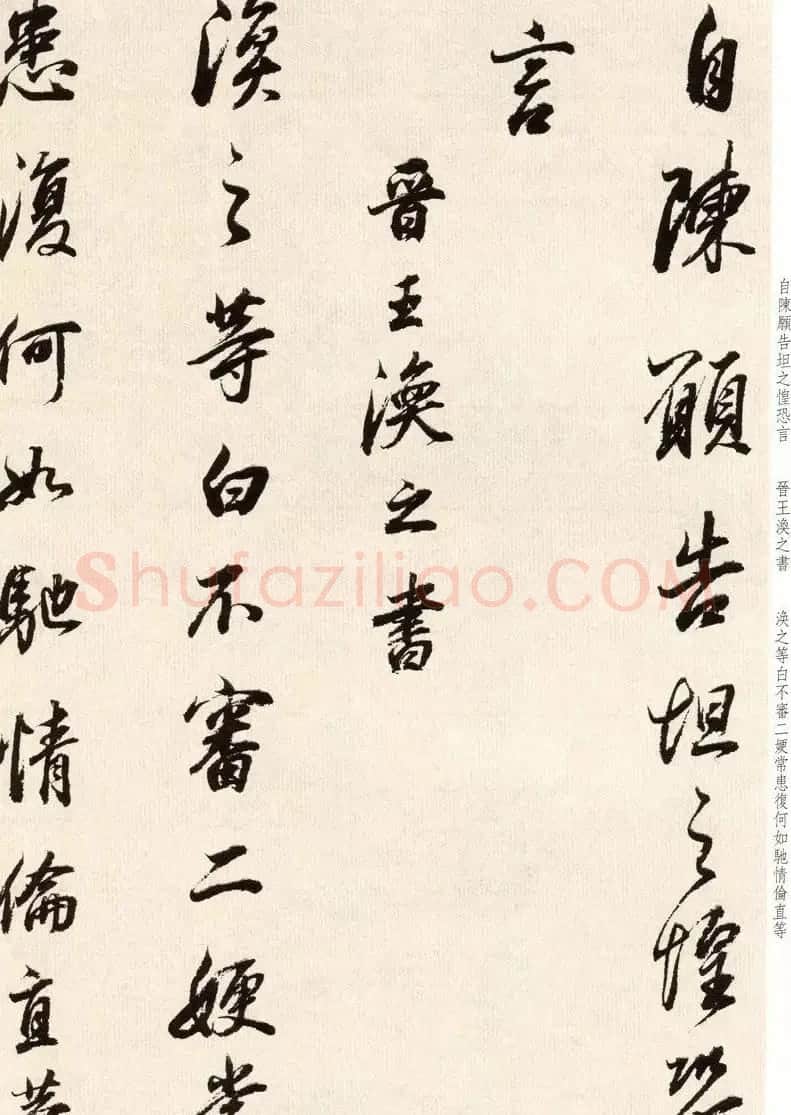 自陳願告坦之惶恐
言
晉王渙之書
渙之等白不審二嫂常
患復何如馳情倫直等
自陳願告坦之惶恐言 晉王渙之書 渙之等白不審二嫂常患復何如馳情倫直等
Shufaziliao.COM